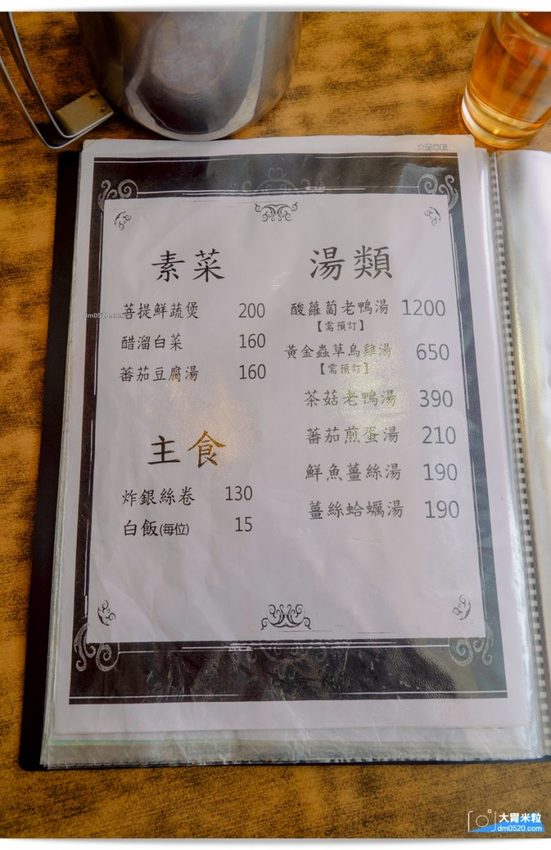 大胃米粒
素菜
菩提鮮蔬煲 200
dm0520.com
醋溜白菜 160
蕃茄豆腐湯 160
主食
炸銀絲卷 130
白飯(每位) 15
湯類
酸蘿蔔老鴨湯 1200
【需預訂】
黃金蟲草烏雞湯 650
【需預訂】
茶菇老鴨湯 390
蕃茄煎蛋湯 210
鮮魚薑絲湯 190
薑絲蛤蠣湯 190
大胃米粒
dm0520.com